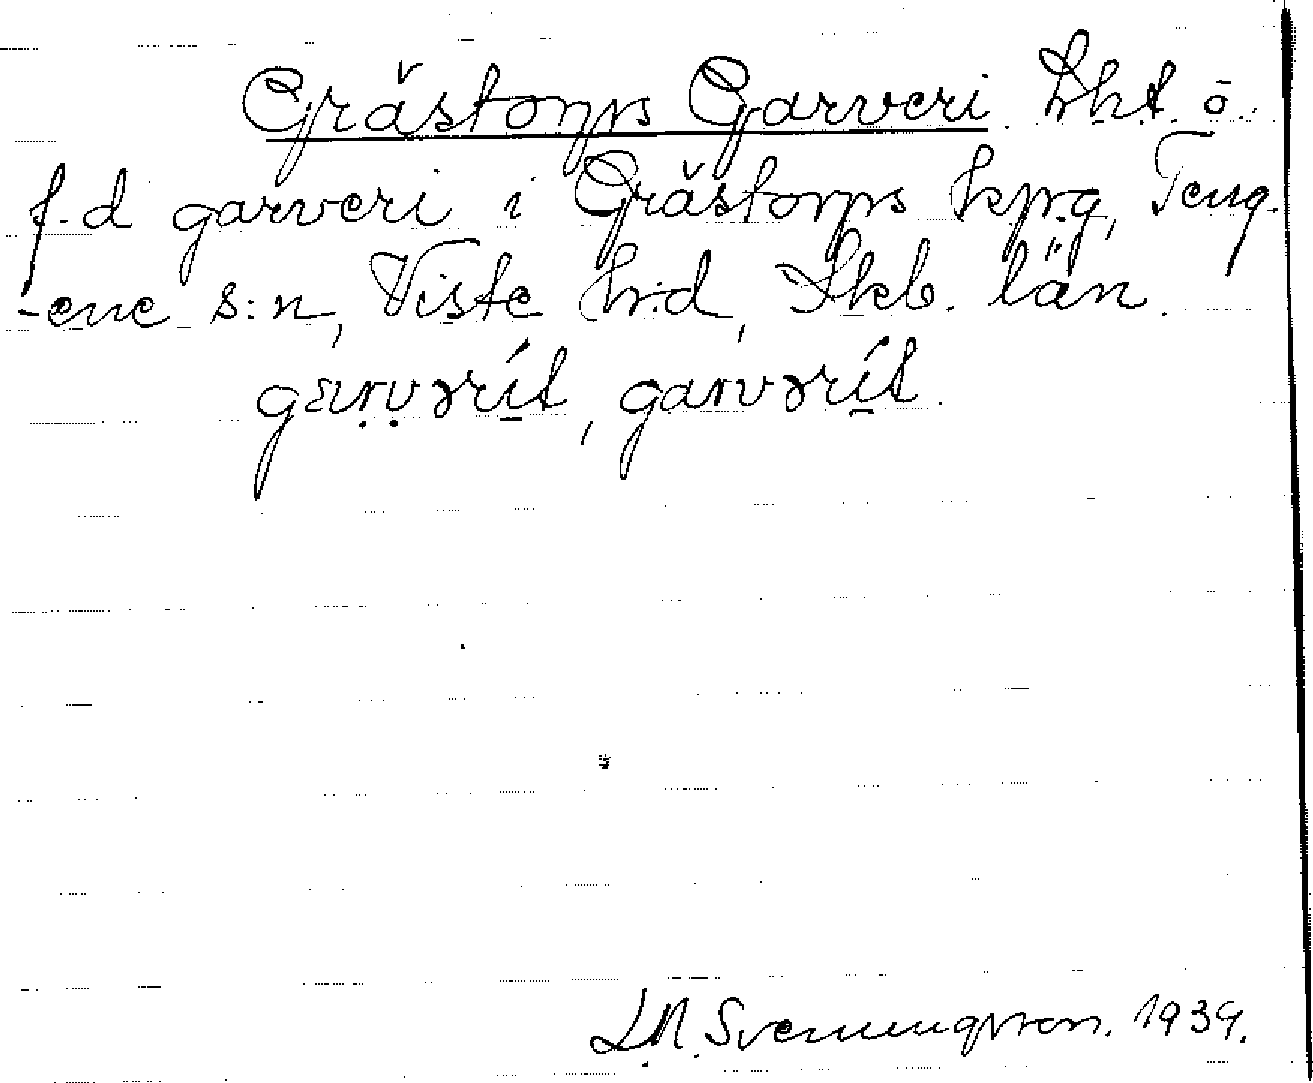 Grästorps Garveri. Lht. o.
f.d garveri i Grästorps kpg, Teng-
-ene s:n, Viste hd, Skb. län.
garvərít, garvərít.
L.N. Svenungsson. 1939.